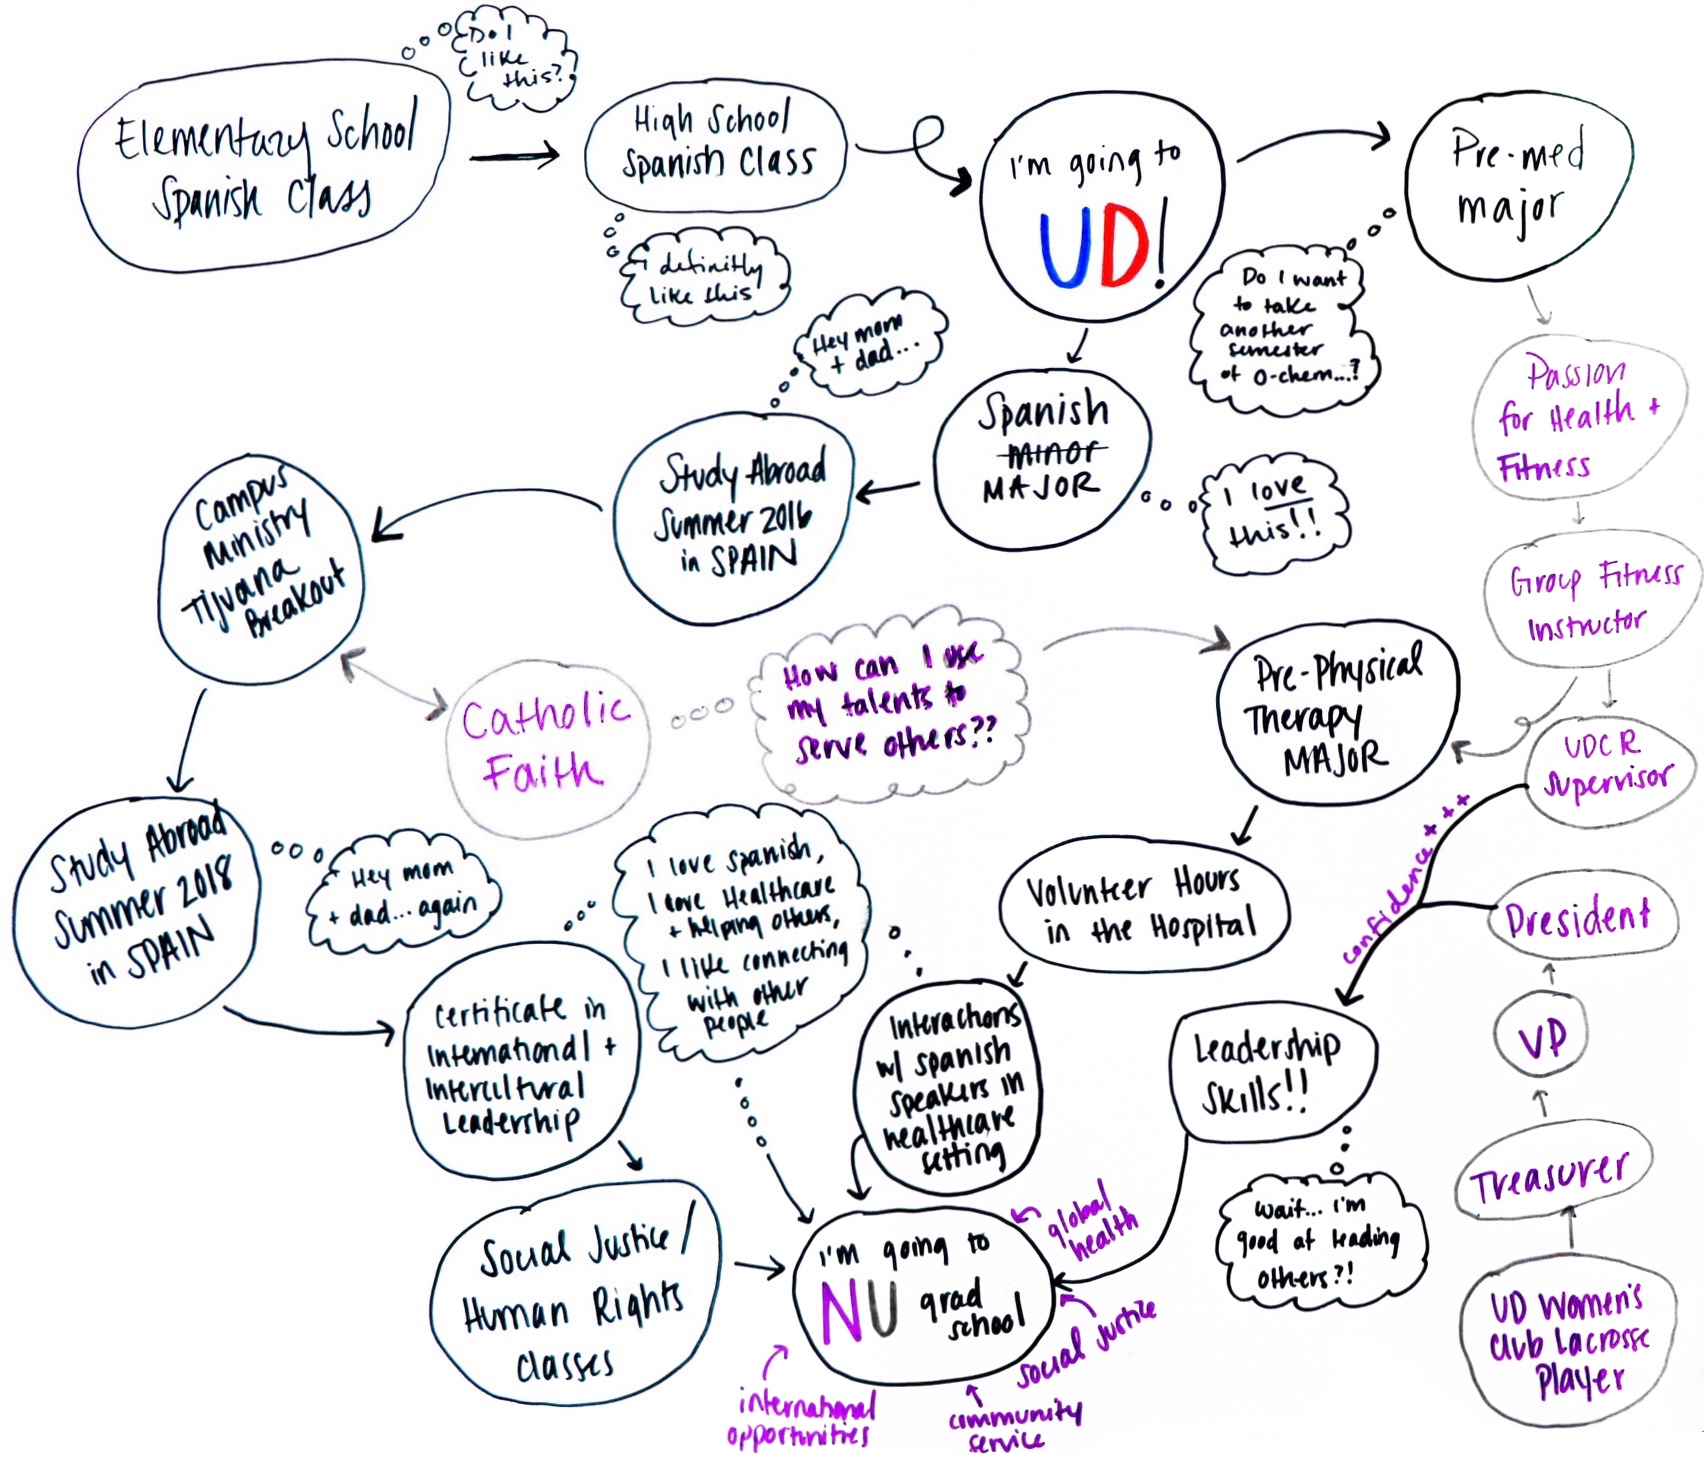 Do I
like
this?
Elementary School
Spanish Class
High School
Spanish Class
I definitly
like this
I'm going to
UD!
Pre-med
major
Do I want
to take
another
semester
of O-chem...?
Passion
for Health +
Fitness
Group Fitness
Instructor
UDCR
Supervisor
Hey mom
+ dad...
Spanish
minor
MAJOR
I love
this!!
Study Abroad
Summer 2016
in SPAIN
Campus
Ministry
Tijuana
Breakout
Catholic
Faith
How can I use
my talents to
serve others??
Pre-Physical
Therapy
MAJOR
Study Abroad
Summer 2018
in SPAIN
Hey mom
+ dad... again
I love spanish,
I love Healthcare
+ helping others,
I like connecting
with other
people
Volunteer Hours
in the Hospital
confidence +++
President
VP
Treasurer
UD Women's
Club Lacrosse
Player
Certificate in
International +
Intercultural
Leadership
Interactions
w/ spanish
speakers in
healthcare
setting
Leadership
Skills!!
wait... i'm
good at leading
others?!
Social Justice/
Human Rights
classes
i'm going to
NU grad
school
global
health
social justice
community
service
international
opportunities